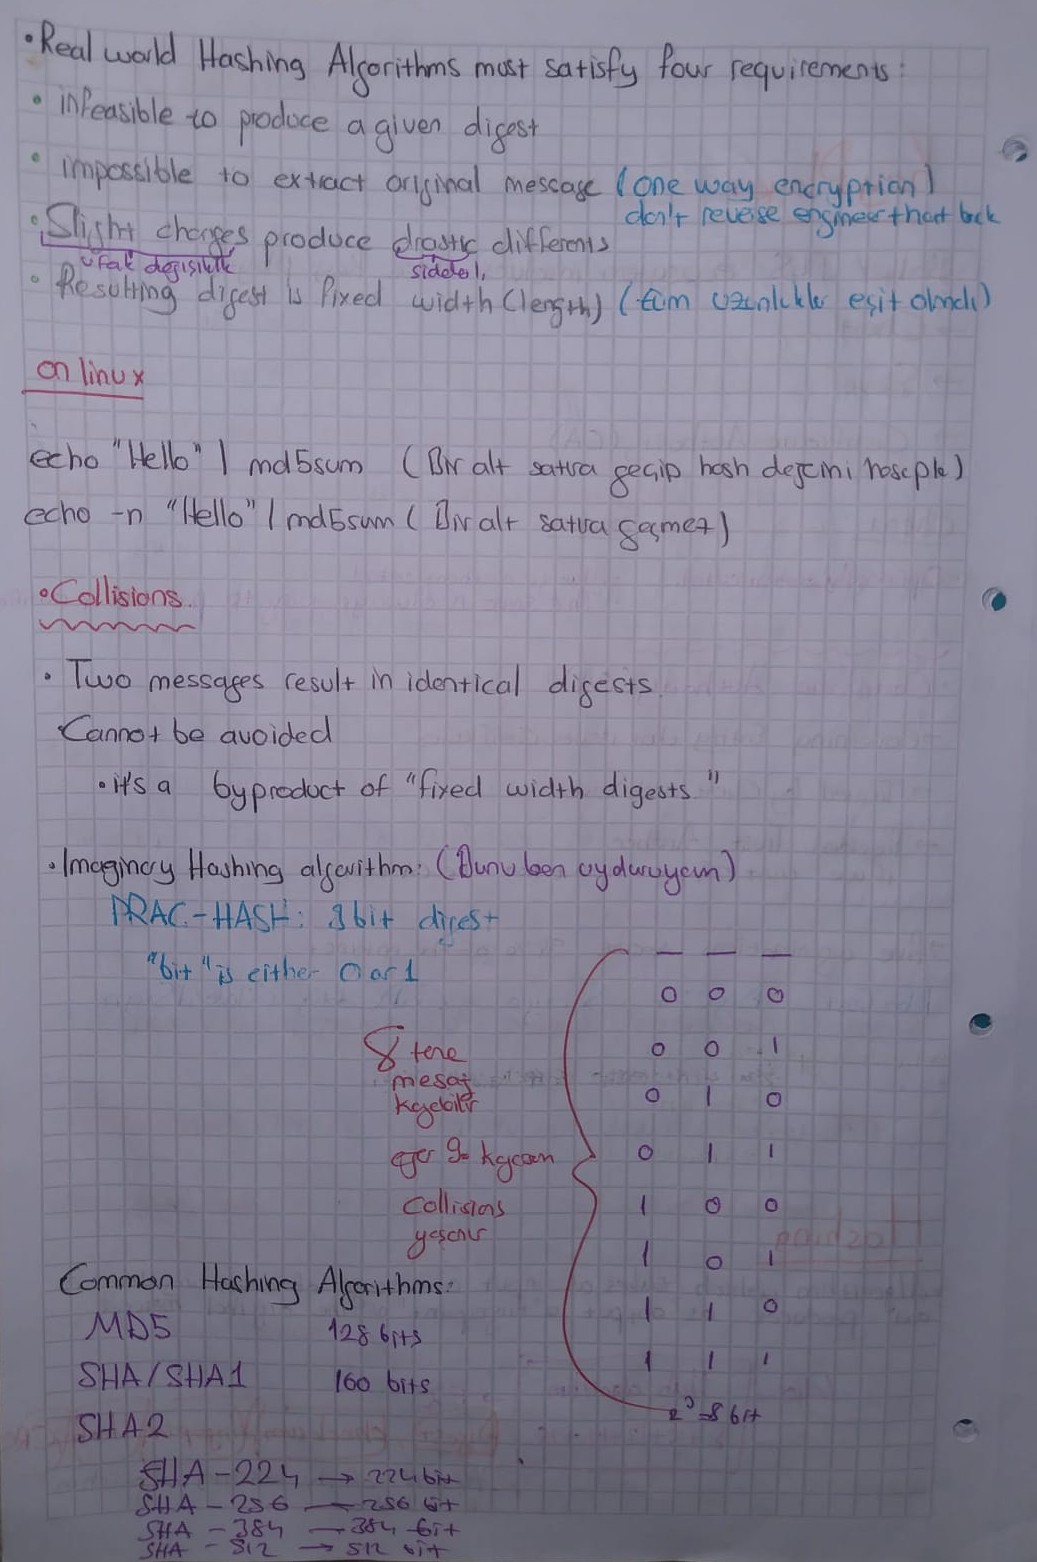 • Real world Hashing Algorithms must satisfy four requirements:
• infeasible to produce a given digest
• impossible to extract original message (one way encryption)
don't reverse engineer that back
• Slight changes produce drastic differents
ufak değişiklik
şiddetli
• Resulting digest is fixed width (length) (tüm uzunluklar eşit olmalı)
on linux
echo "Hello" | md5sum (Bir alt satıra geçip hash değerini hesapla)
echo -n "Hello" | md5sum (Bir alt satıra geçmez)
• Collisions.
• Two messages result in identical digests.
Cannot be avoided
• it's a byproduct of "fixed width digests"
• Imaginary Hashing algorithm: (Bunu ben uyduruyorum)
PRAC-HASH: 3 bit digest
"bit" is either 0 or 1
0 0 0
0 0 1
0 1 0
0 1 1
1 0 0
1 0 1
1 1 0
1 1 1
2³=8 bit
8 tane
mesaj
eğer 9.
Collisions
yaşanır
Common Hashing Algorithms:
MD5 128 bits
SHA/SHA1 160 bits
SHA2
SHA-224 → 224 bit
SHA - 256 — 256 bit
SHA - 384 — 384 bit
SHA - 512 → 512 bit